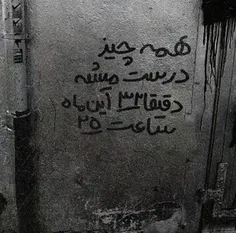 همه چیز
درست میشه
دقیقا ۳۲ این ماه
ساعت ۲۵